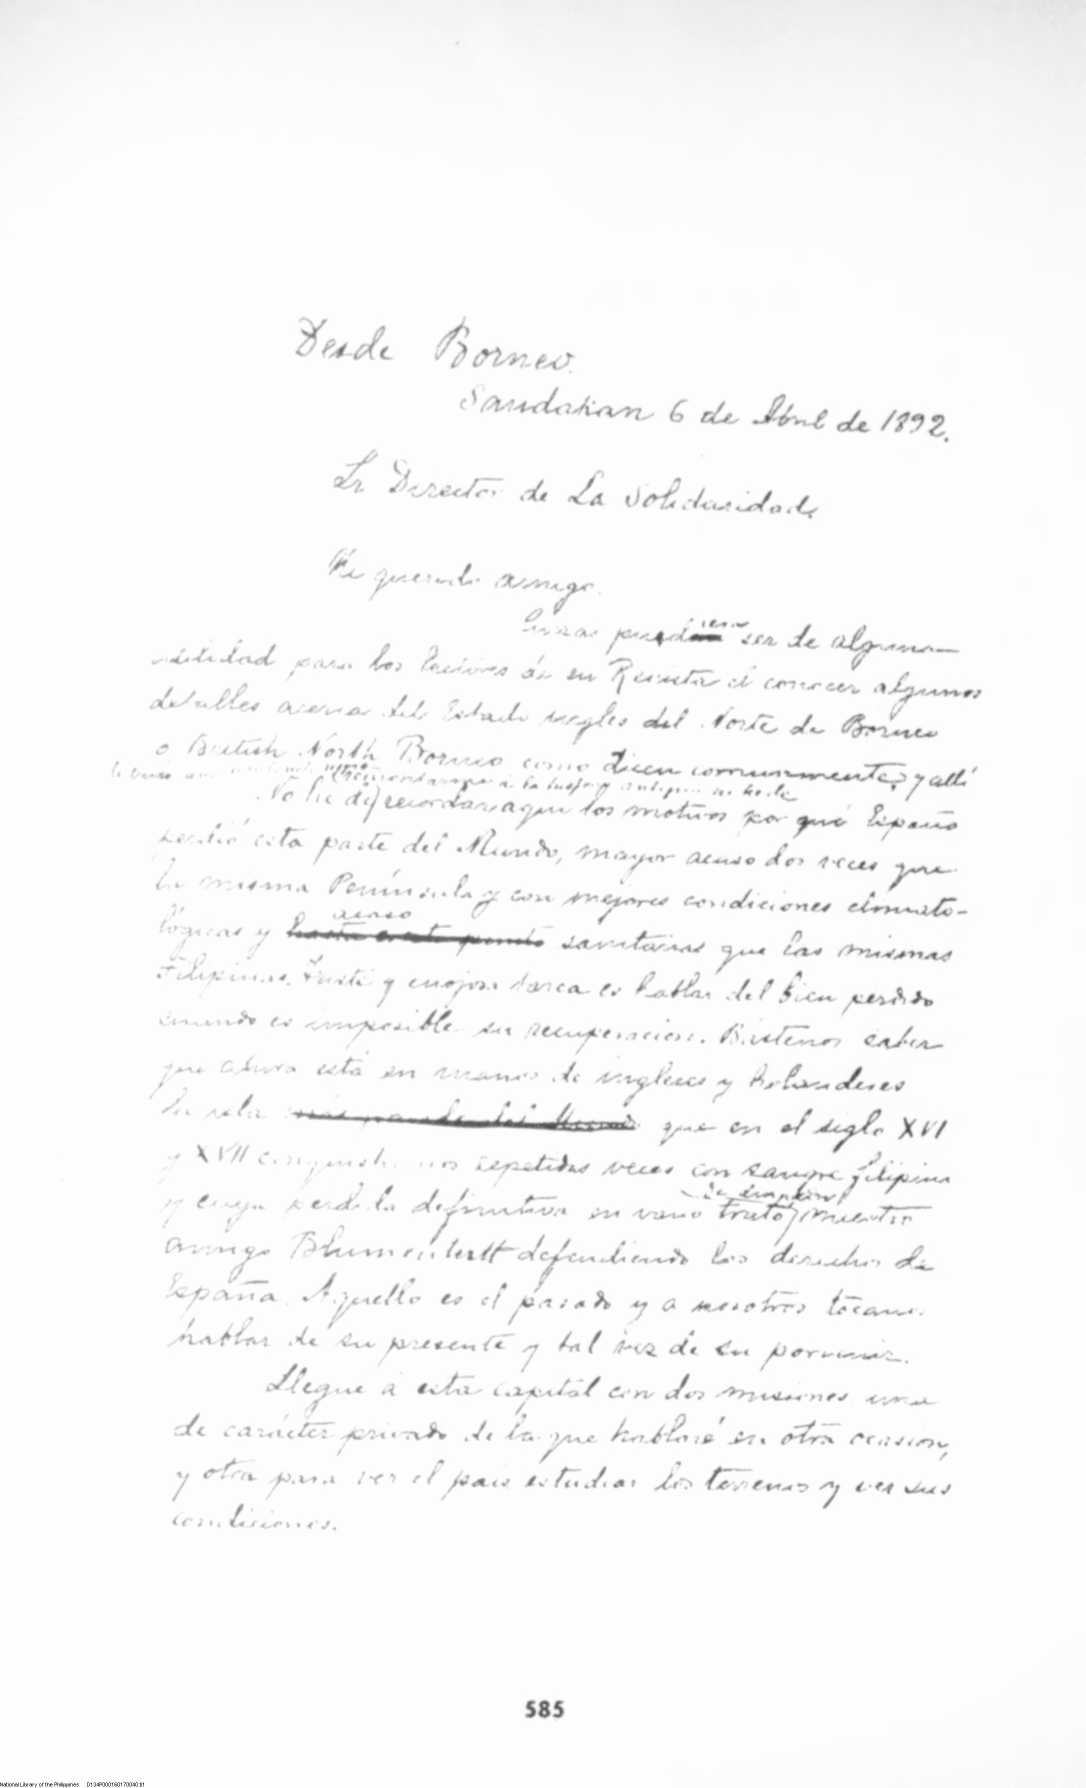 Desde Borneo.
Sandakan 6 de Abril de 1892.
Sr Director de La Solidaridad.
Mi querido amigo.
Quizas pued iera ser de alguna
utilidad para los lectores de su Revista el conocer algunos
detalles acerca del Estado ingles del Norte de Borneo
o British North Borneo como dicen comunmente, y alli
No he de recordar aqui los motivos por qué España
perdió esta parte del Mundo, mayor acaso dos veces que
la misma Península y con mejores condiciones climato-
acaso
lógicas y hasta sanitarias que las mismas
Filipinas. Triste y enojosa tarea es hablar del bien perdido
cuando es imposible su recuperacion. Bástenos saber
que ahora está en manos de ingleses y holandeses
la isla que en el siglo XVI
y XVII conquistamos repetidas veces con sangre filipina
y cuya perdida definitiva en vano trató nuestro
amigo Blumentritt defendiendo los derechos de
España. Aquello es el pasado y a nosotros tócanos
hablar de su presente y tal vez de su porvenir.
Llegué á esta capital con dos misiones una
de carácter privado de la que hablaré en otra ocasion,
y otra para ver el pais estudiar los terrenos y ver sus
condiciones.
585
National Library of the Philippines